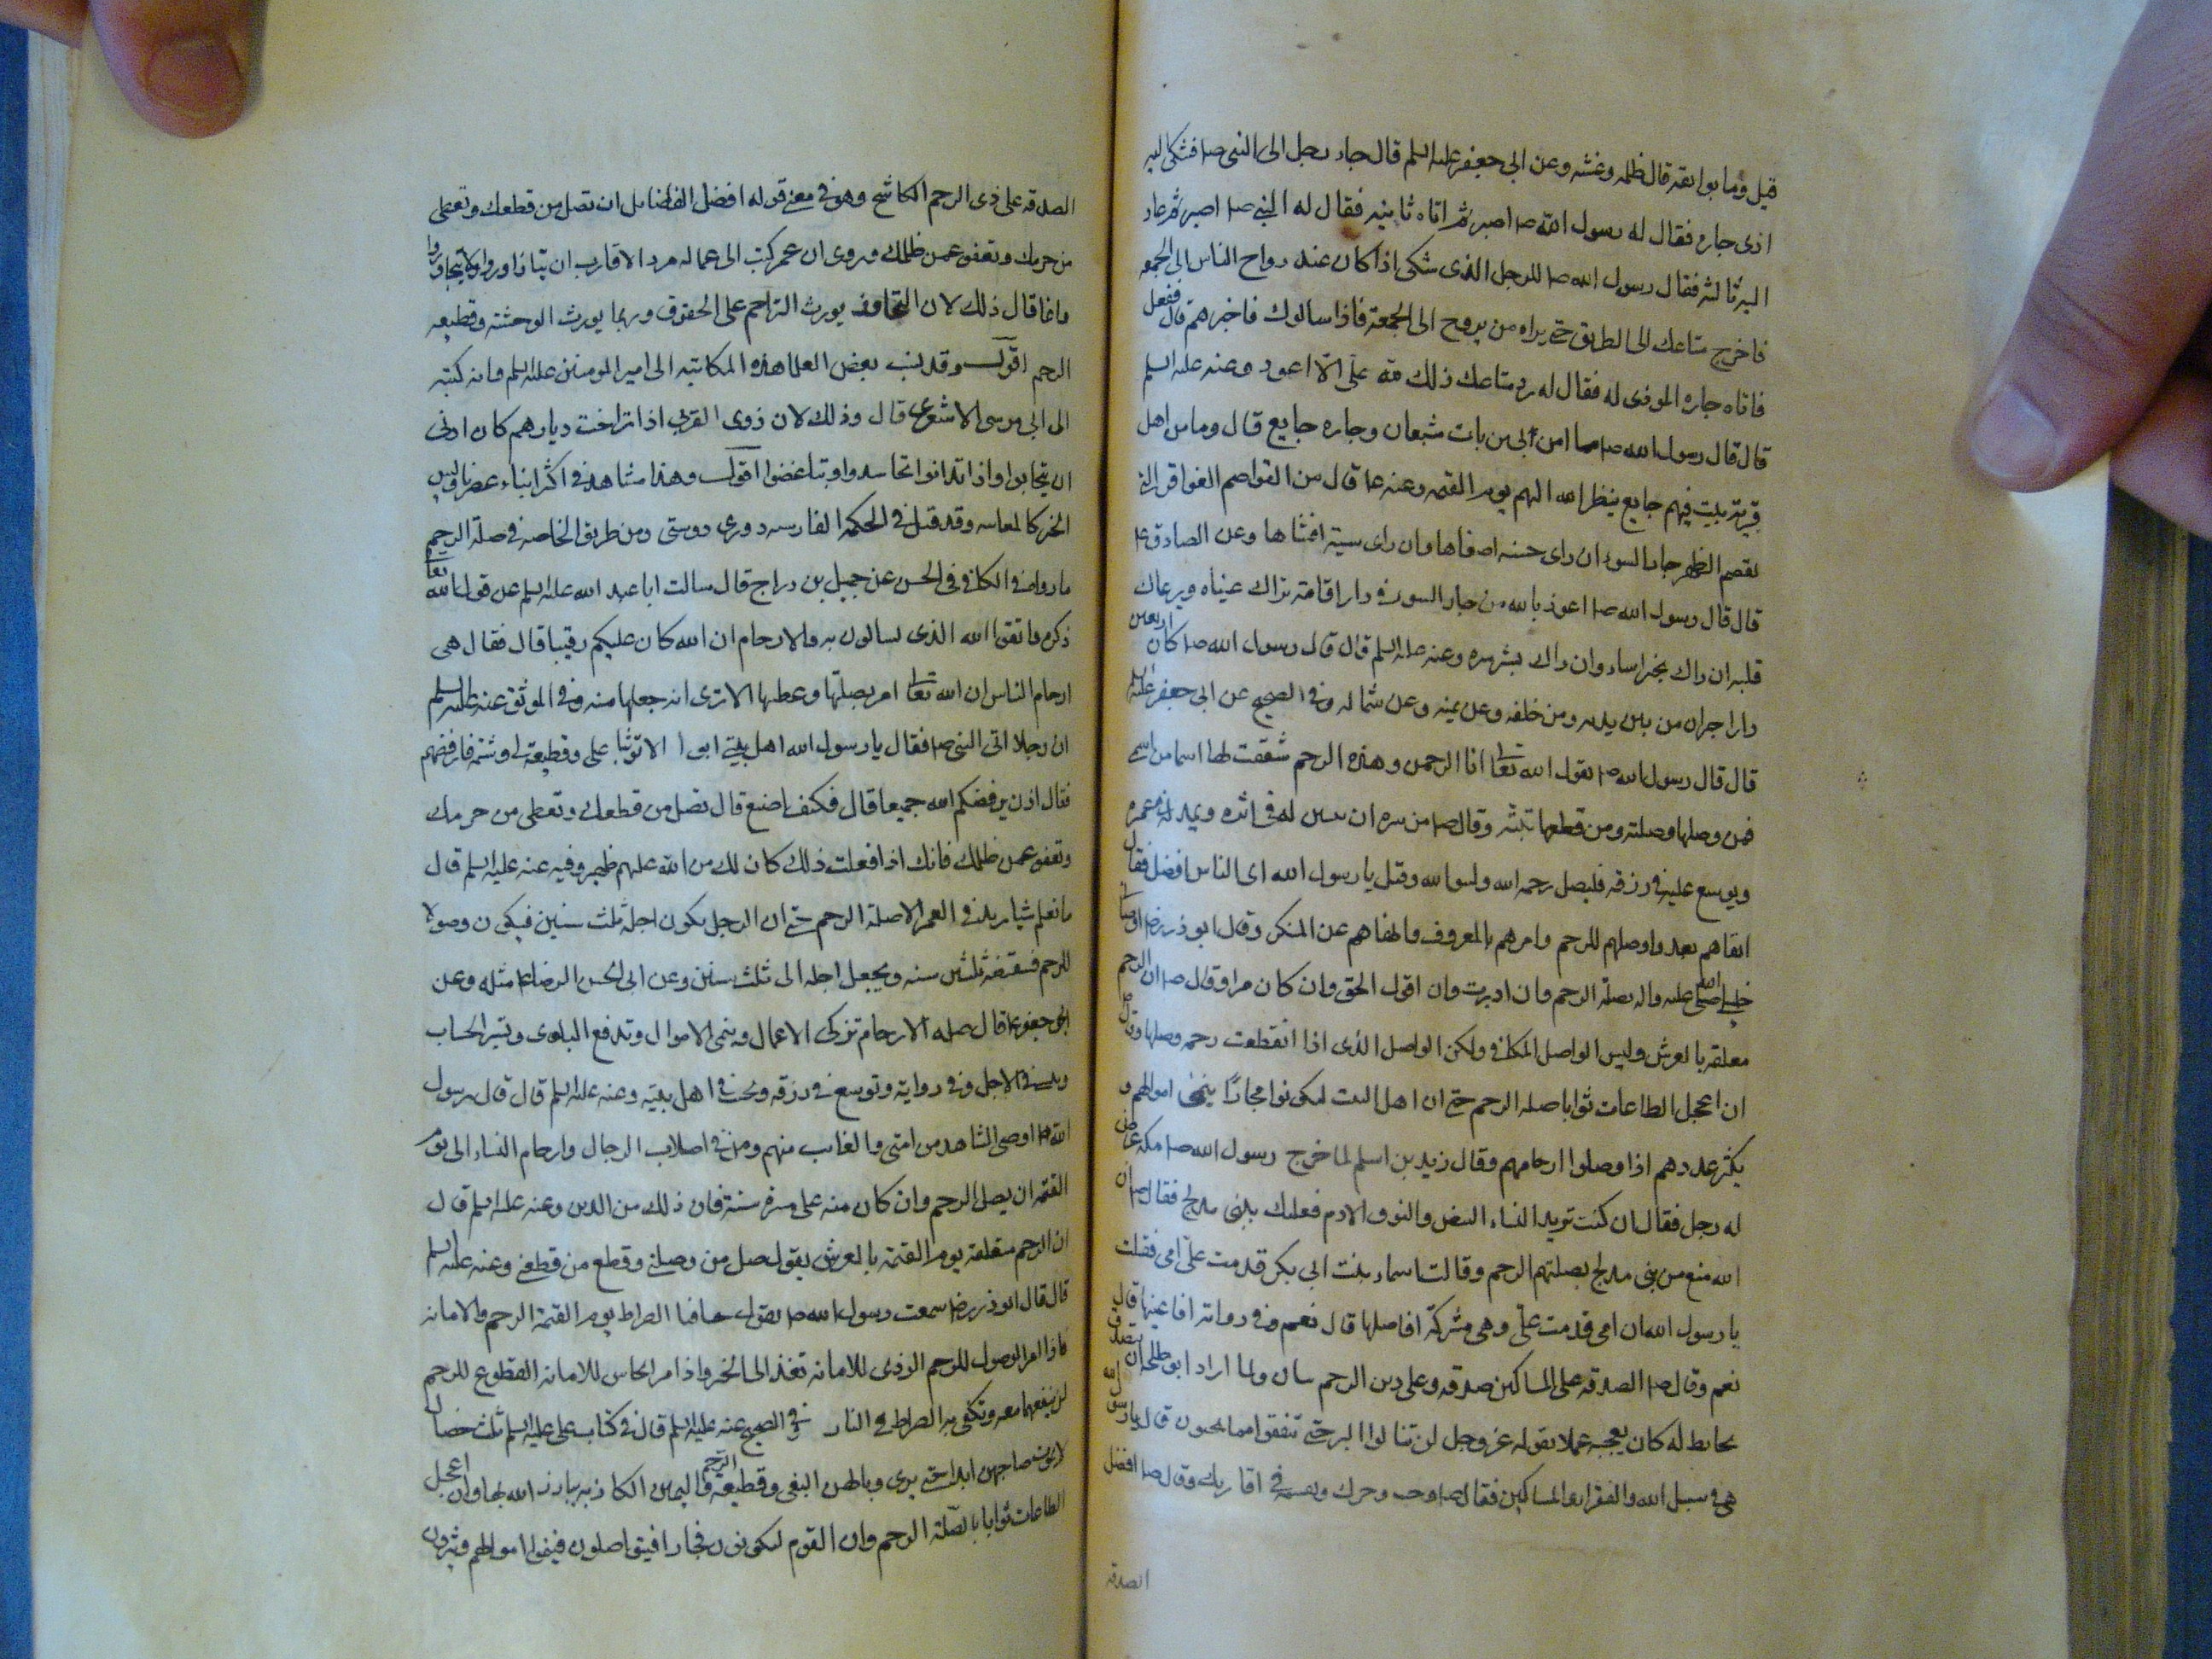 قيل وما بوايقه قال ظلمه وغشه وعن ابي جعفر عليه السلم قال جاء رجل الى النبي صلم فشكى اليه
اذى جاره فقال له رسول الله صلم اصبر ثم اتاه ثانيه فقال له النبي صلم اصبر ثم عاد
اليه ثالثه فقال رسول الله صلم للرجل الذى شكى اذا كان عند رواح الناس الى الجمعه
فاخرج متاعك الى الطريق حتى يراه من يروح الى الجمعة فاذا سالوك فاخبرهم قال ففعل
فاتاه جاره الموذى له فقال له رد متاعك ذلك الله على الا اعود وعنه عليه السلم
قال قال رسول الله صلم ما امن بى من بات شبعان وجاره جايع قال وما من اهل
قرية يبيت فيهم جايع ينظر الله اليهم يوم القيمه وعنه ع قال من القواصم الفواقر التى
تقصم الظهر جار السوء ان راى حسنه اخفاها وان راى سيئة افشاها وعن الصادق ع
قال قال رسول الله صلم اعوذ بالله من جار السوء فى دار اقامة تراك عيناه ويرعاك
قلبه ان راك بخير اساءه وان راك بشر سره وعنه عليه السلم قال قال رسول الله صلم كل اربعين
دارا جيران من بين يديه ومن خلفه وعن يمينه وعن شماله وفى الصحيح عن ابى جعفر عليه السلم
قال قال رسول الله صلم يقول الله تعا انا الرحمن وهذه الرحم شققت لها اسما من اسمى
فمن وصلها وصلته ومن قطعها بتته وقال صلم من سره ان ينسى له فى اثره ويمد له فى عمره
ويوسع عليه فى رزقه فليصل رحمه الله وليتق الله وقيل يا رسول الله اى الناس افضل فقال
اتقاهم بعد واوصلهم للرحم وامرهم بالمعروف وانهاهم عن المنكر وقال ابو ذر رض اوصانى
خليلى صلى الله عليه واله بصلة الرحم وان ادبرت وان اقول الحق وان كان مرا وقال صلم ان الرحم
معلقه بالعرش وليس الواصل المكافى ولكن الواصل الذى اذا انقطعت رحمه وصلها وقال صلم
ان اعجل الطاعات ثوابا صله الرحم حتى ان اهل البيت ليكونوا فجارا ينمى اموالهم و
يكثر عددهم اذا وصلوا ارحامهم وقال زيد بن اسلم لما خرج رسول الله صلم مكه عرض
له رجل فقال ان كنت تريد النساء البيض والنوق الادم فعليك ببنى مدلج فقال صلم ان
الله منع من بنى مدلج بصلتهم الرحم وقالت اسماء بنت ابى بكر قدمت على امى فقلت
يا رسول الله ان امى قدمت على وهى مشركة افاصلها قال نعم وفى رواية افاعطيها قال
نعم وقال صلم الصدقه على المساكين صدقه وعلى ذى الرحم ثنتان ولما اراد ابو طلحه ان يتصدق
بحايط له كان يعجبه عملا بقوله عز وجل لن تنالوا البر حتى تنفقوا مما تحبون قال يا رسول الله
هى فى سبيل الله والفقراء والمساكين فقال صلم وجب اجرك وقسمه فى اقاربك وقال صلم افضل
الصدقه
الصدقه على ذى الرحم الكاشح وهو فى معنى قوله افضل الفضايل ان تصل من قطعك وتعطى
من حرمك وتعفو عمن ظلمك وروى ان عمر كتب الى عماله مر الاقارب ان يتزاوروا ولا يتجاوروا
وانما قال ذلك لان التجاور يورث التزاحم على الحقوق وربما يورث الوحشة وقطيعه
الرحم اقول وقد نسب بعض العلما هذه المكاتبه الى امير المومنين عليه السلم وانه كتبه
الى ابى موسى الاشعرى قال وذلك لان ذوى القربى اذا تراخت ديارهم كان ادنى
ان يتحابوا واذا تدانوا تحاسدوا وتباغضوا اقول وهذا مشاهد فى اكثر ابناء عصرنا وليس
الخبر كالمعاينه وقد قيل فى الحكمه الفارسيه دورى دوستى ومن طريق الخاصه فى صلة الرحم
ما رواه فى الكافى فى الحسن عن جميل بن دراج قال سالت ابا عبد الله عليه السلم عن قول الله تعا
ذكره واتقوا الله الذى تسالون به والارحام ان الله كان عليكم رقيبا قال فقال هى
ارحام الناس ان الله تعا امر بصلتها وعظمها الا ترى انه جعلها منه وفى الموثق عنه عليه السلم
ان رجلا اتى النبى صلم فقال يا رسول الله اهل بيتى ابوا الا توثبا على وقطيعة لى وشتمه فارفضهم
فقال اذن يرفضكم الله جميعا قال فكيف اصنع قال تصل من قطعك وتعطى من حرمك
وتعفو عمن ظلمك فانك اذا فعلت ذلك كان لك من الله عليهم ظهير وفيه عنه عليه السلم قال
ما نعلم شيا يزيد فى العمر الا صلة الرحم حتى ان الرجل يكون اجله ثلث سنين فيكون وصولا
للرحم فينقصه ثلثين سنه ويجعل اجله الى ثلث سنين وعن ابى الحسن الرضا ع مثله وعن
ابى جعفر ع قال صله الارحام تزكى الاعمال وتنمى الاموال وتدفع البلوى وتيسر الحساب
وتنسى فى الاجل وفى رواية وتوسع فى رزقه وتحبب فى اهل بيته وعنه عليه السلم قال قال رسول
الله صلم اوصى الشاهد من امتى والغايب منهم ومن فى اصلاب الرجال وارحام النساء الى يوم
القيمه ان يصل الرحم وان كان منه على مسيره سنة فان ذلك من الدين وعنه عليه السلم قال
ان الرحم متعلقة يوم القيمة بالعرش يقول صل من وصلنى وقطع من قطعنى وعنه عليه السلم
قال قال ابو ذر رض سمعت رسول الله صلم يقول حافتا الصراط يوم القيمة الرحم والامانه
فاذا مر الوصول للرحم الموذى للامانه نفذ الى الجنه واذا مر الخاين للامانه القطوع للرحم
لم ينفعهما معه وتكفى به الصراط فى النار وفى الصحيح عنه عليه السلم قال فى كتاب على عليه السلم ثلث خصال
لا يموت صاحبهن ابدا حتى يرى وبالهن البغى وقطيعه الرحم واليمين الكاذبه يبارز الله بها وان اعجل
الطاعات ثوابا بالصلة الرحم وان القوم ليكونون فجارا فيتواصلون فينمو اموالهم ويثرون